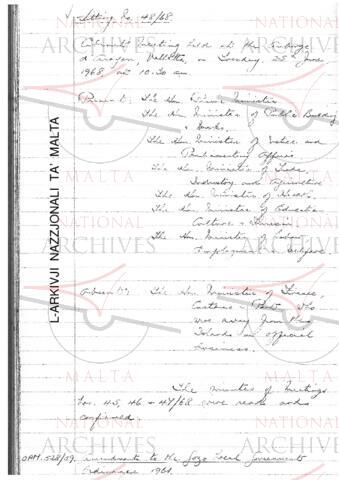 Sitting No. 48/68.
Cabinet meeting held at the Auberge
d'Aragon, Valletta, on Tuesday, 25th June
1968, at 10.30 am.
Present: The Hon. Prime Minister
The Hon. Minister of Public Building
& Works.
The Hon. Minister of Justice and
Parliamentary Affairs
The Hon. Minister of Trade,
Industry and Agriculture
The Hon. Minister of Health.
The Hon. Minister of Education
Culture & Tourism
The Hon. Minister of Labour
Employment & Welfare.
Absent: The Hon. Minister of Finance,
Customs & Port. who
was away from the
Islands on official
business.
The minutes of meetings
Nos. 45, 46 & 47/68 were read and
confirmed.
OPM. 528/59. Amendments to the Gozo Local Government
Ordinance 1961.
L-ARKIVJI NAZZJONALI TA' MALTA
NATIONAL
ARCHIVES
MALTA
NATIONAL
ARCHIVES
MALTA
NATIONAL
ARCHIVES
MALTA
NATIONAL
ARCHIVES